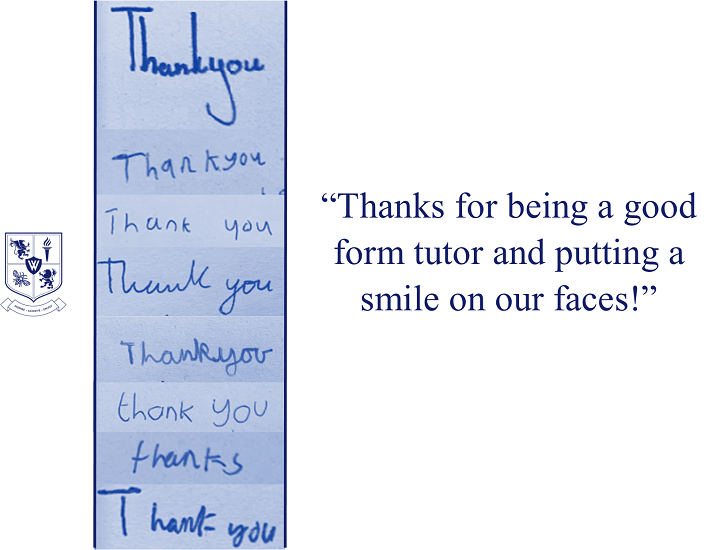 Thankyou
Thankyou
Thank you
Thank you
Thankyou
thank you
thanks
Thank you
“Thanks for being a good
form tutor and putting a
smile on our faces!”